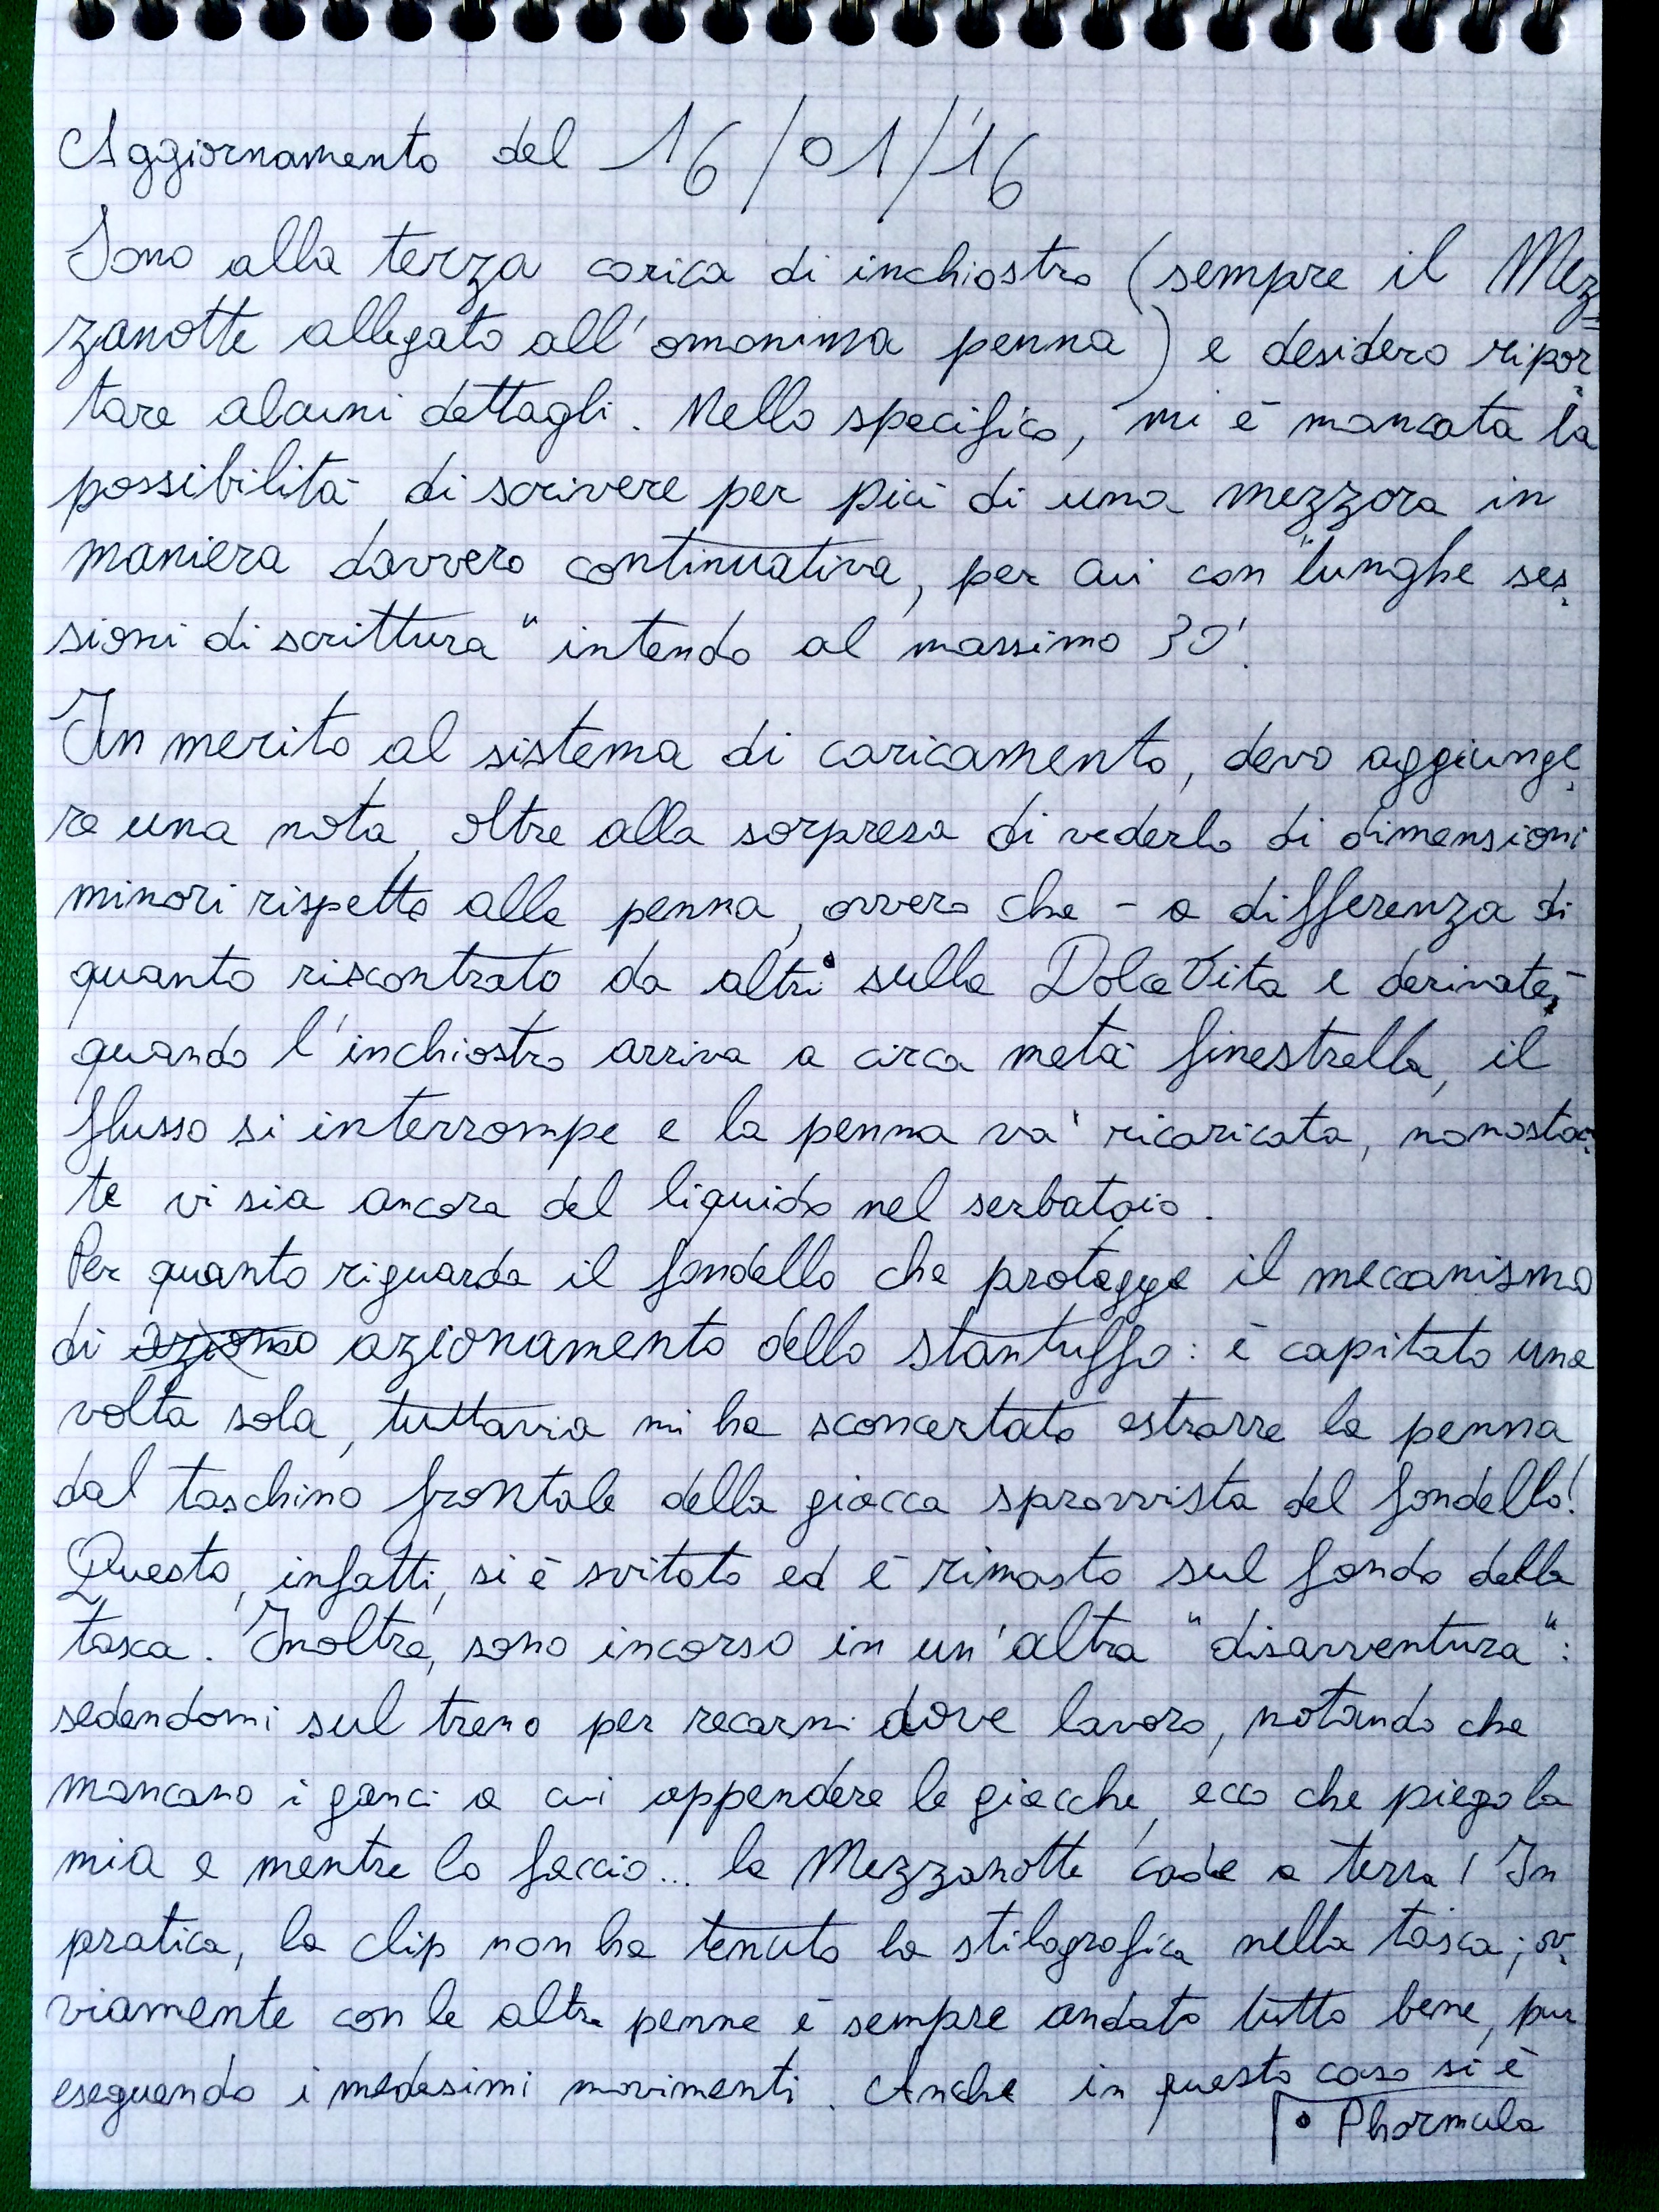 Aggiornamento del 16/01/'16
Sono alla terza carica di inchiostro (sempre il Mez=
zanotte allegato all'omonima penna) e desidero ripor-
tare alcuni dettagli. Nello specifico, mi è mancata la
possibilità di scrivere per più di una mezzora in
maniera davvero continuativa, per cui con "lunghe ses-
sioni di scrittura" intendo al massimo 30'.
In merito al sistema di caricamento, devo aggiunge-
re una nota, oltre alla sorpresa di vederlo di dimensioni
minori rispetto alla penna, ovvero che - a differenza di
quanto riscontrato da altri sulla DolceVita e derivate -
quando l'inchiostro arriva a circa metà finestrella, il
flusso si interrompe e la penna va' ricaricata, nonostan-
te vi sia ancora del liquido nel serbatoio.
Per quanto riguarda il fondello che protegge il meccanismo
di azionamento dello stantuffo: è capitato una
volta sola, tuttavia mi ha sconcertato estrarre la penna
dal taschino frontale della giacca sprovvista del fondello!
Questo, infatti, si è svitato ed è rimasto sul fondo della
tasca. Inoltre, sono incorso in un'altra "disavventura":
sedendomi sul treno per recarmi dove lavoro, notando che
mancano i ganci a cui appendere le giacche, ecco che piego la
mia e mentre lo faccio... la Mezzanotte cade a terra! In
pratica, la clip non ha tenuto la stilografica nella tasca; ov-
viamente con le altre penne è sempre andato tutto bene, pur
eseguendo i medesimi movimenti. Anche in questo caso si è
Pharmula